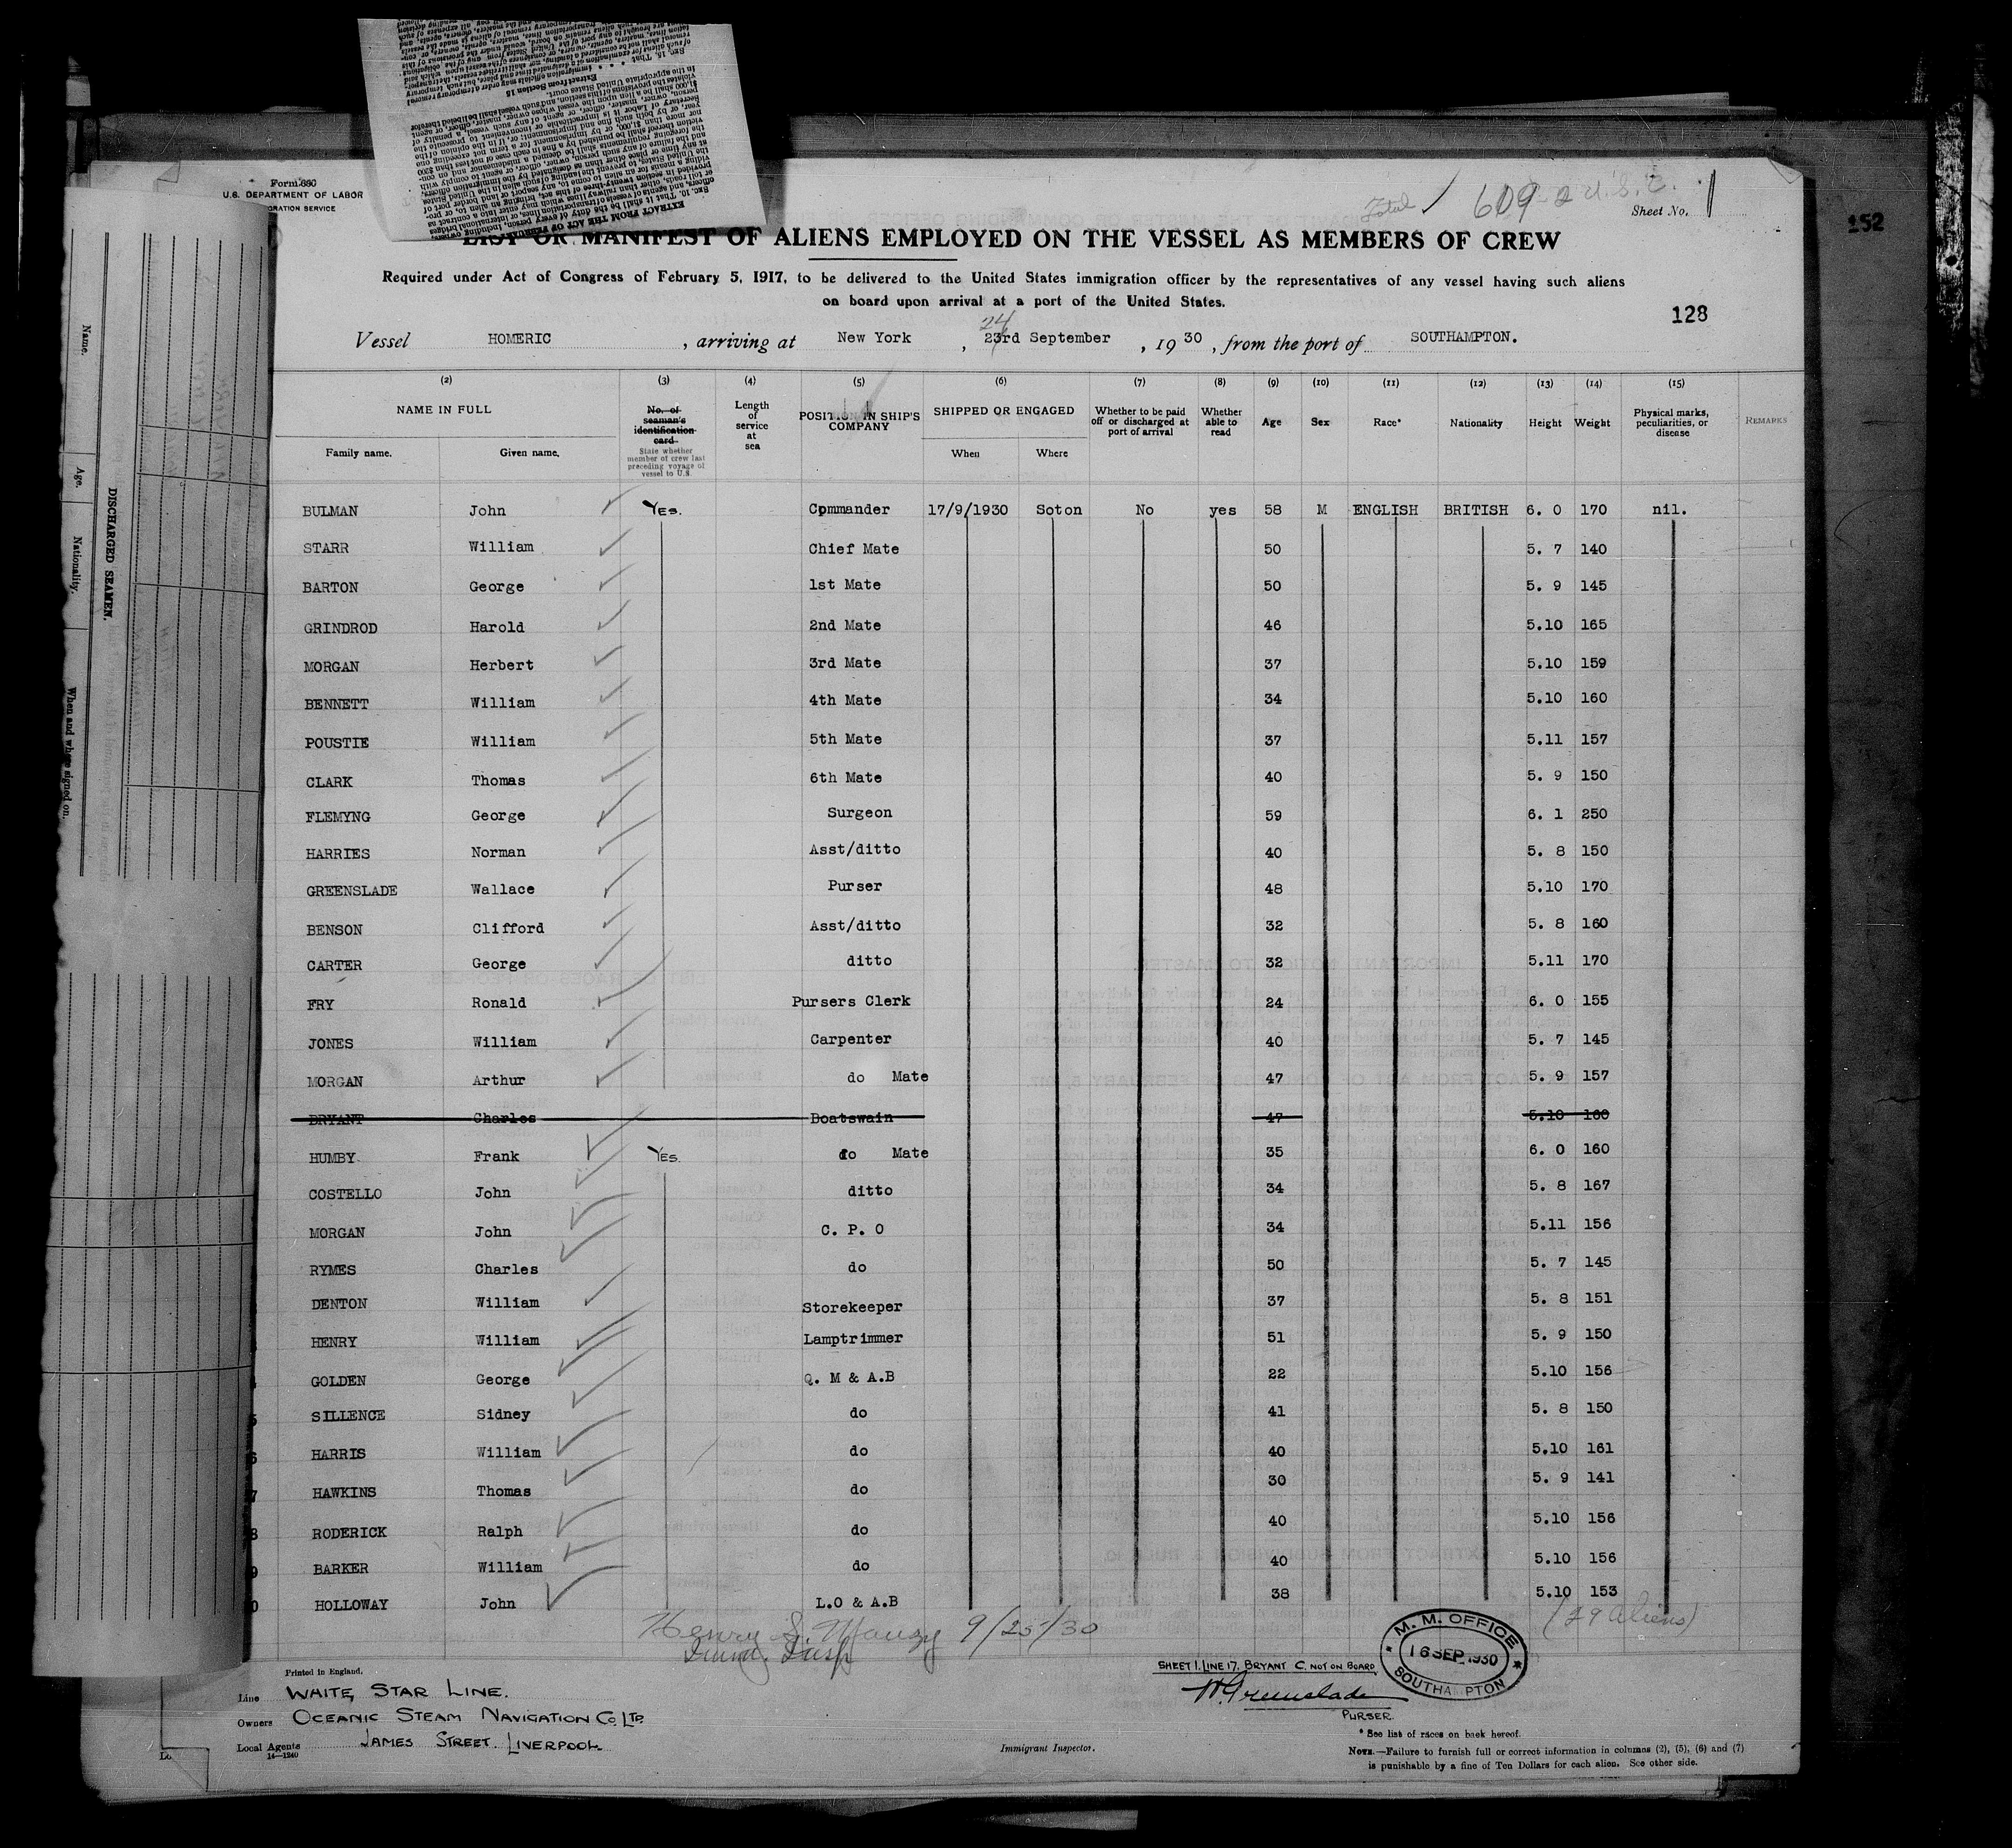 Form 680
U.S. DEPARTMENT OF LABOR
Total ✓ 609
Sheet No. 1
152
LIST OR MANIFEST OF ALIENS EMPLOYED ON THE VESSEL AS MEMBERS OF CREW
Required under Act of Congress of February 5, 1917, to be delivered to the United States immigration officer by the representatives of any vessel having such aliens
on board upon arrival at a port of the United States.
128
24
Vessel HOMERIC , arriving at New York , 23rd September , 19 30 , from the port of SOUTHAMPTON.
(2) (3) (4) (5) (6) (7) (8) (9) (10) (11) (12) (13) (14) (15)
NAME IN FULL
Family name. Given name.
No. of seaman's identification card
State whether member of crew last preceding voyage of vessel to U.S.
Length of service at sea
POSITION IN SHIP'S COMPANY
SHIPPED OR ENGAGED
When Where
Whether to be paid off or discharged at port of arrival
Whether able to read
Age Sex Race* Nationality Height Weight
Physical marks, peculiarities, or disease
REMARKS
BULMAN John ✓ YES. Commander 17/9/1930 Soton No yes 58 M ENGLISH BRITISH 6. 0 170 nil.
STARR William ✓ Chief Mate 50 5. 7 140
BARTON George ✓ 1st Mate 50 5. 9 145
GRINDROD Harold ✓ 2nd Mate 46 5.10 165
MORGAN Herbert ✓ 3rd Mate 37 5.10 159
BENNETT William ✓ 4th Mate 34 5.10 160
POUSTIE William ✓ 5th Mate 37 5.11 157
CLARK Thomas ✓ 6th Mate 40 5. 9 150
FLEMYNG George ✓ Surgeon 59 6. 1 250
HARRIES Norman ✓ Asst/ditto 40 5. 8 150
GREENSLADE Wallace ✓ Purser 48 5.10 170
BENSON Clifford ✓ Asst/ditto 32 5. 8 160
CARTER George ✓ ditto 32 5.11 170
FRY Ronald ✓ Pursers Clerk 24 6. 0 155
JONES William ✓ Carpenter 40 5. 7 145
MORGAN Arthur ✓ do Mate 47 5. 9 157
BRYANT Charles Boatswain 47 5.10 160
HUMBY Frank ✓ YES. do Mate 35 6. 0 160
COSTELLO John ✓ ditto 34 5. 8 167
MORGAN John ✓ C. P. O 34 5.11 156
RYMES Charles ✓ do 50 5. 7 145
DENTON William ✓ Storekeeper 37 5. 8 151
HENRY William ✓ Lamptrimmer 51 5. 9 150
GOLDEN George ✓ Q. M & A.B 22 5.10 156
SILLENCE Sidney ✓ do 41 5. 8 150
HARRIS William ✓ do 40 5.10 161
HAWKINS Thomas ✓ do 30 5. 9 141
RODERICK Ralph ✓ do 40 5.10 156
BARKER William ✓ do 40 5.10 156
HOLLOWAY John ✓ L.O & A.B 38 5.10 153
(29 aliens)
Henry S. 9/25/30
Printed in England.
Line WHITE STAR LINE.
Owners OCEANIC STEAM NAVIGATION CO. LTD.
Local Agents JAMES STREET. LIVERPOOL.
14—1240
Immigrant Inspector.
SHEET 1. LINE 17. BRYANT C. NOT ON BOARD
W Greenslade
PURSER.
M. M. OFFICE
16 SEP 1930
SOUTHAMPTON
* See list of races on back hereof.
NOTE.—Failure to furnish full or correct information in columns (2), (5), (6) and (7)
is punishable by a fine of Ten Dollars for each alien. See other side.
DISCHARGED SEAMEN.
Name. Age. Nationality. When and where signed on.
EXTRACT FROM THE ACT OF FEBRUARY
Extract from Section 15